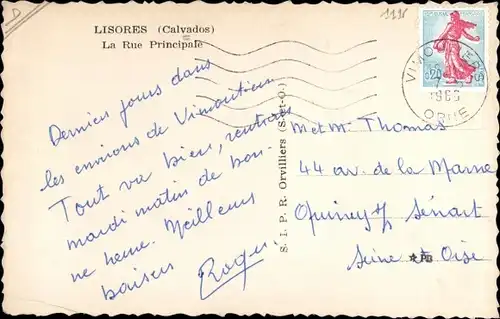 D
1118
LISORES (Calvados)
La Rue Principale
VIMOUTIERS
ORNE
0,20
Derniers jours dans
les environs de Vimoutiers
Tout va bien, rentrons
mardi matin de bon-
ne heure. Meilleurs
baisers Roger
S. I. P. R. Orvilliers (S.-et-O.)
M et Mr Thomas
44 av. de la Marne
Quincy s/ Sénart
Seine et Oise